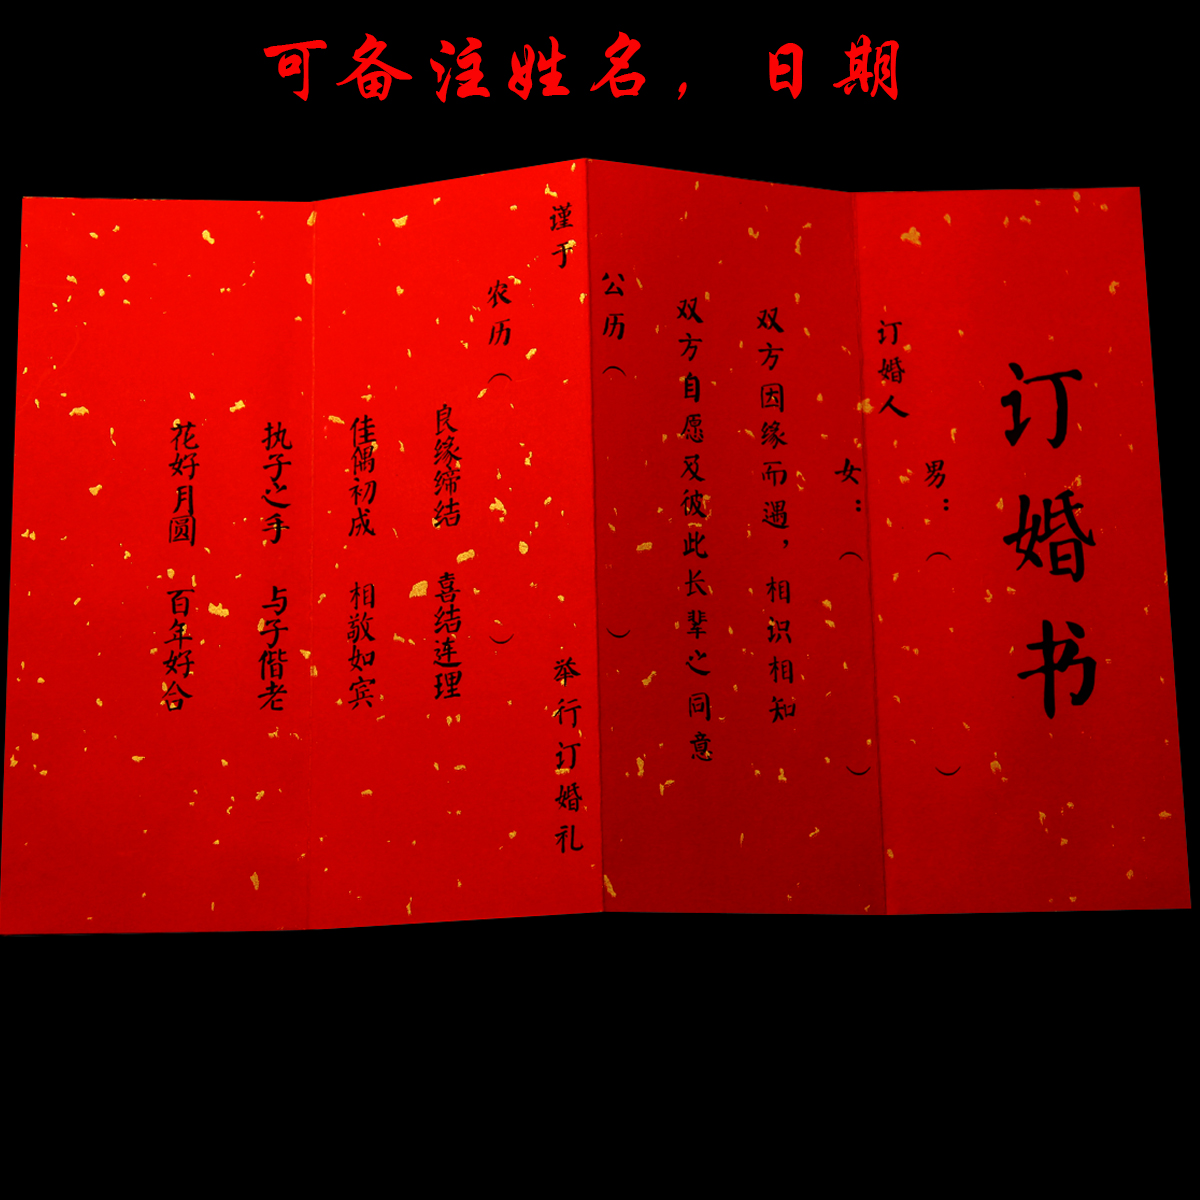 可备注姓名，日期
订婚书
男：（ ）
订婚人
女：（ ）
双方因缘而遇，相识相知
双方自愿及彼此长辈之同意
公历（ ）
谨于 举行订婚礼
农历（ ）
良缘缔结 喜结连理
佳偶初成 相敬如宾
执子之手 与子偕老
花好月圆 百年好合